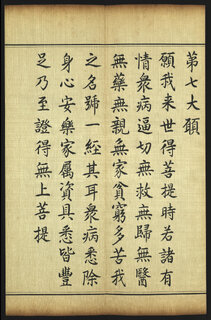 第七大願
願我来世得菩提時若諸有
情衆病逼切無救無歸無醫
無藥無親無家貧窮多苦我
之名號一經其耳衆病悉除
身心安樂家属資具悉皆豐
足乃至證得無上菩提